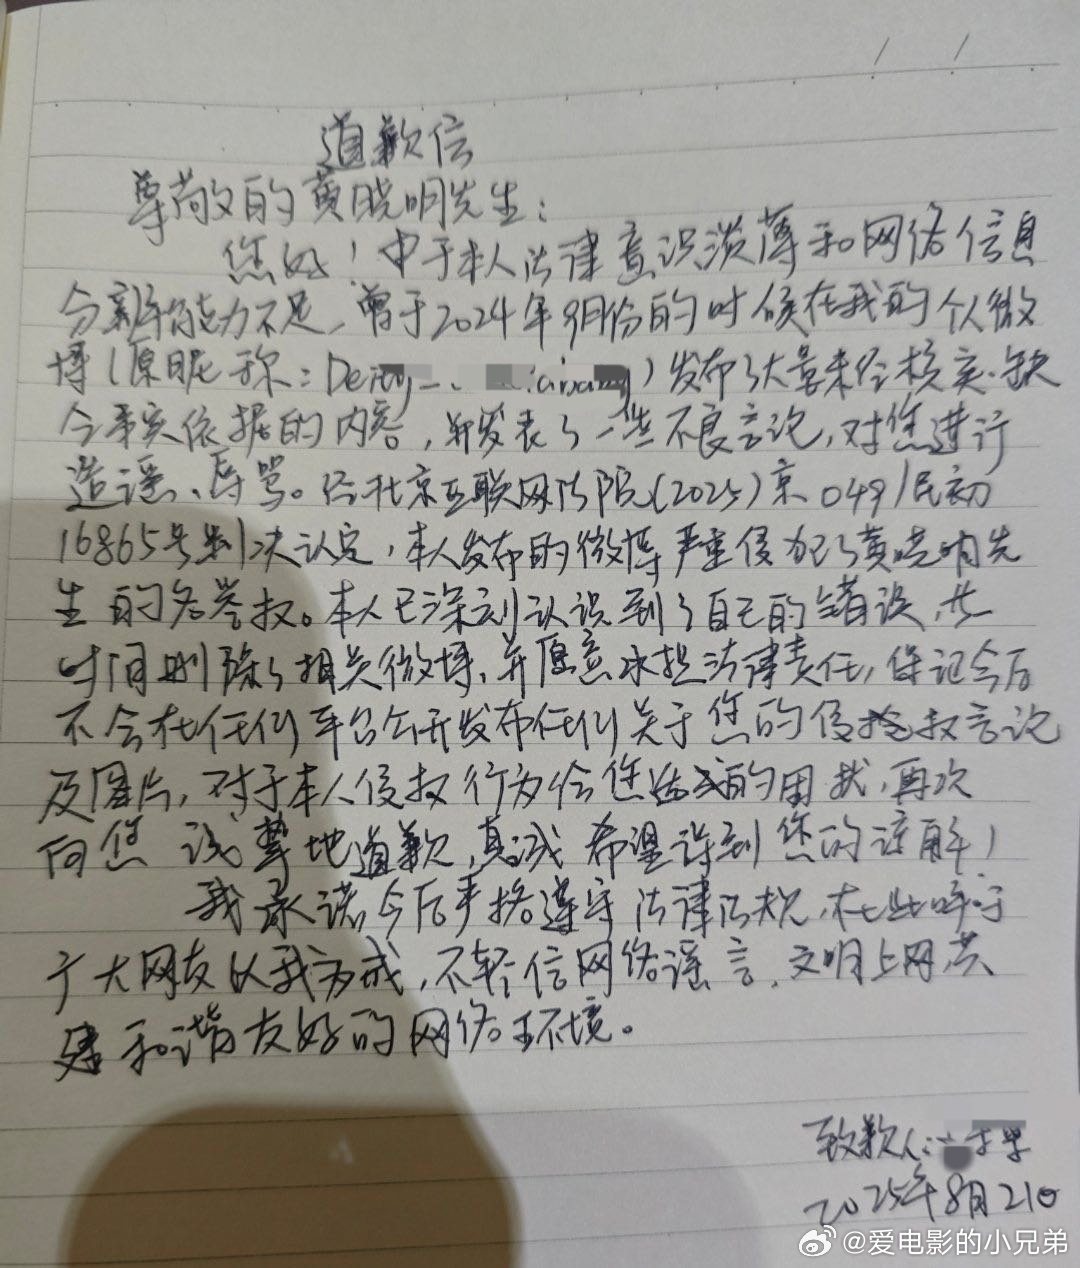 道歉信
尊敬的黄晓明先生：
您好！由于本人法律意识淡薄和网络信息
分辨能力不足，曾于2024年9月份的时候在我的个微
博（原昵称：Deity_）发布了大量未经核实、缺
令事实依据的内容，并发表了一些不良言论，对您进行
造谣、辱骂。经北京互联网法院（2025）京0491民初
16865号判决认定，本人发布的微博严重侵犯了黄晓明先
生的名誉权。本人已深刻认识到了自己的错误，此
时间删除了相关微博，并愿意承担法律责任，保证今后
不会在任何平台公开发布任何关于您的侵权言论
及图片，对于本人侵权行为给您造成的困扰，再次
向您诚挚地道歉，真诚希望得到您的谅解！
我承诺今后严格遵守法律法规，在此呼吁
广大网友以我为戒，不轻信网络谣言，文明上网共
建和谐友好的网络环境。
致歉人：
2025年8月21日
@爱电影的小兄弟